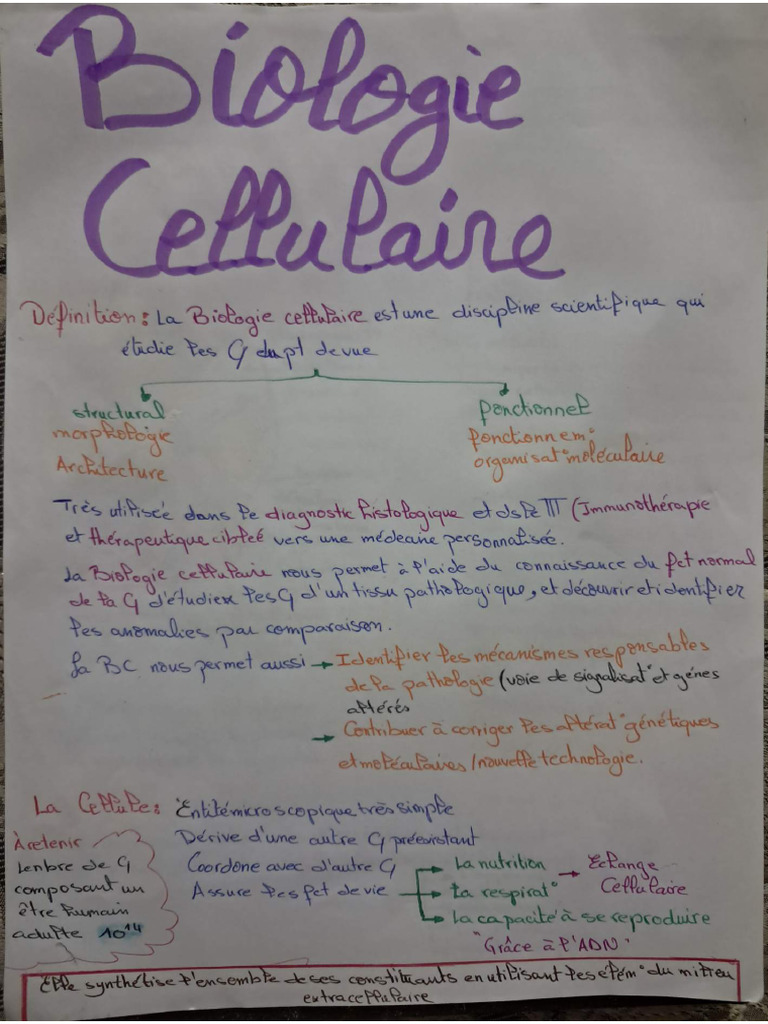 Biologie
Cellulaire
Définition: La Biologie cellulaire est une discipline scientifique qui
étudie les C du pt de vue
structural
morphologie
Architecture
fonctionnel
fonctionnem°
organisat° moléculaire
Très utilisée dans le diagnostic histologique et ds le TTT (Immunothérapie
et thérapeutique ciblée vers une médecine personnalisée.
La Biologie cellulaire nous permet à l'aide du connaissance du fct normal
de la C d'étudier les C d'un tissu pathologique, et découvrir et identifier
les anomalies par comparaison.
La BC nous permet aussi → Identifier les mécanismes responsables
de la pathologie (voie de signalisat° et génes
altérés
→ Contribuer à corriger les altérat° génétiques
et moléculaires / nouvelle technologie.
La Cellule: Entité microscopique très simple
Dérive d'une autre C préexistant
Coordone avec d'autre C
Assure les fct de vie
→ La nutrition
→ La respirat°
→ Echange
Cellulaire
→ La capacité à se reproduire
"Grâce à l'ADN"
À retenir
Le nbre de C
composant un
être humain
adulte 10¹⁴
Elle synthétise l'ensemble de ses constituants en utilisant les élém° du milieu
extracellulaire